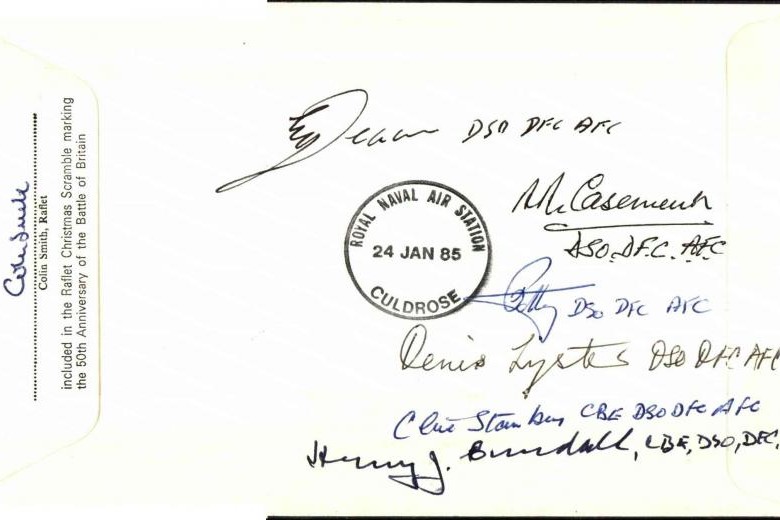 Colin Smith
Colin Smith, Raflet
included in the Raflet Christmas Scramble marking
the 50th Anniversary of the Battle of Britain
DSO DFC AFC
ROYAL NAVAL AIR STATION
24 JAN 85
CULDROSE
Casement
DSO. D.F.C. AFC
DSO DFC AFC
Denis Lyster DSO DFC AFC
Clive CBE DSO DFC AFC
Henry J. Burdall, CBE, DSO, DFC,